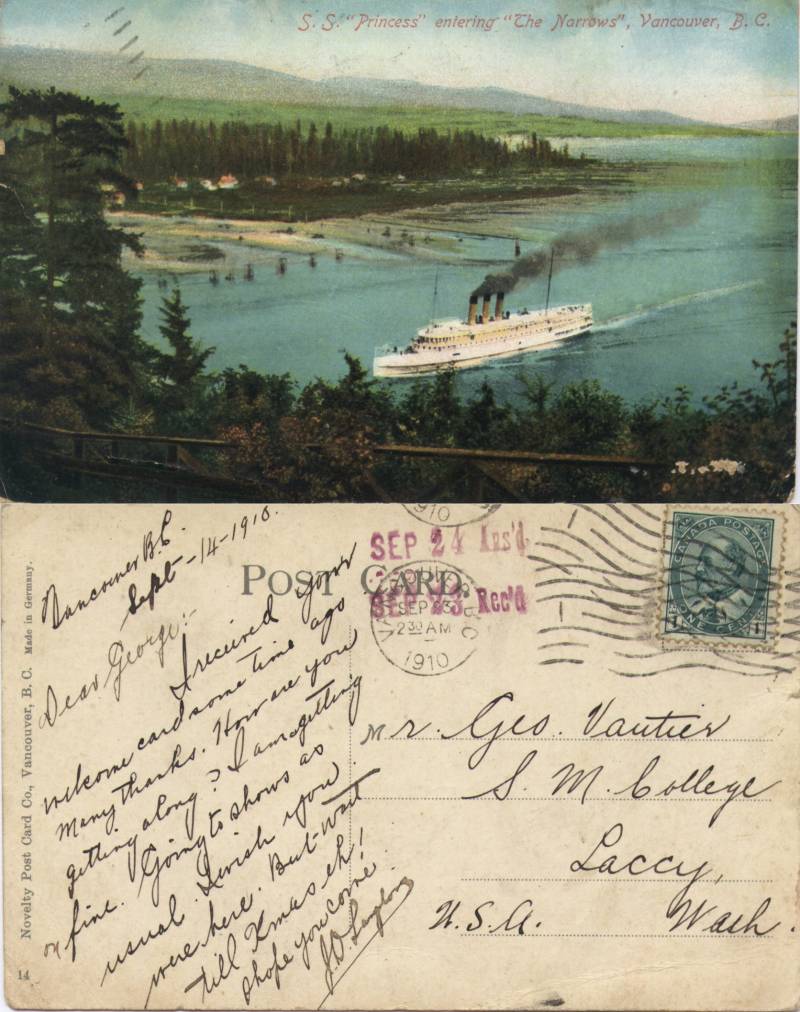 S. S. "Princess" entering "The Narrows", Vancouver, B. C.
Novelty Post Card Co., Vancouver, B. C. Made in Germany.
14
POST CARD.
Vancouver B.C.
Sept-14-1910.
Dear George:-
I received your
welcome card some time ago
Many thanks. How are you
getting along? I am getting
on fine. Going to shows as
usual. I wish you
were here. But wait
till Xmas eh!
I hope you come.
J.D.
1910
SEP 24 Ans'd
SEP 23 Rec'd
VANCOUVER
SEP 23
2 30 AM
1910
CANADA POSTAGE
1 1
ONE CENT
Mr. Geo. Vautier
S. M. College
Laccy,
Wash.
U.S.A.